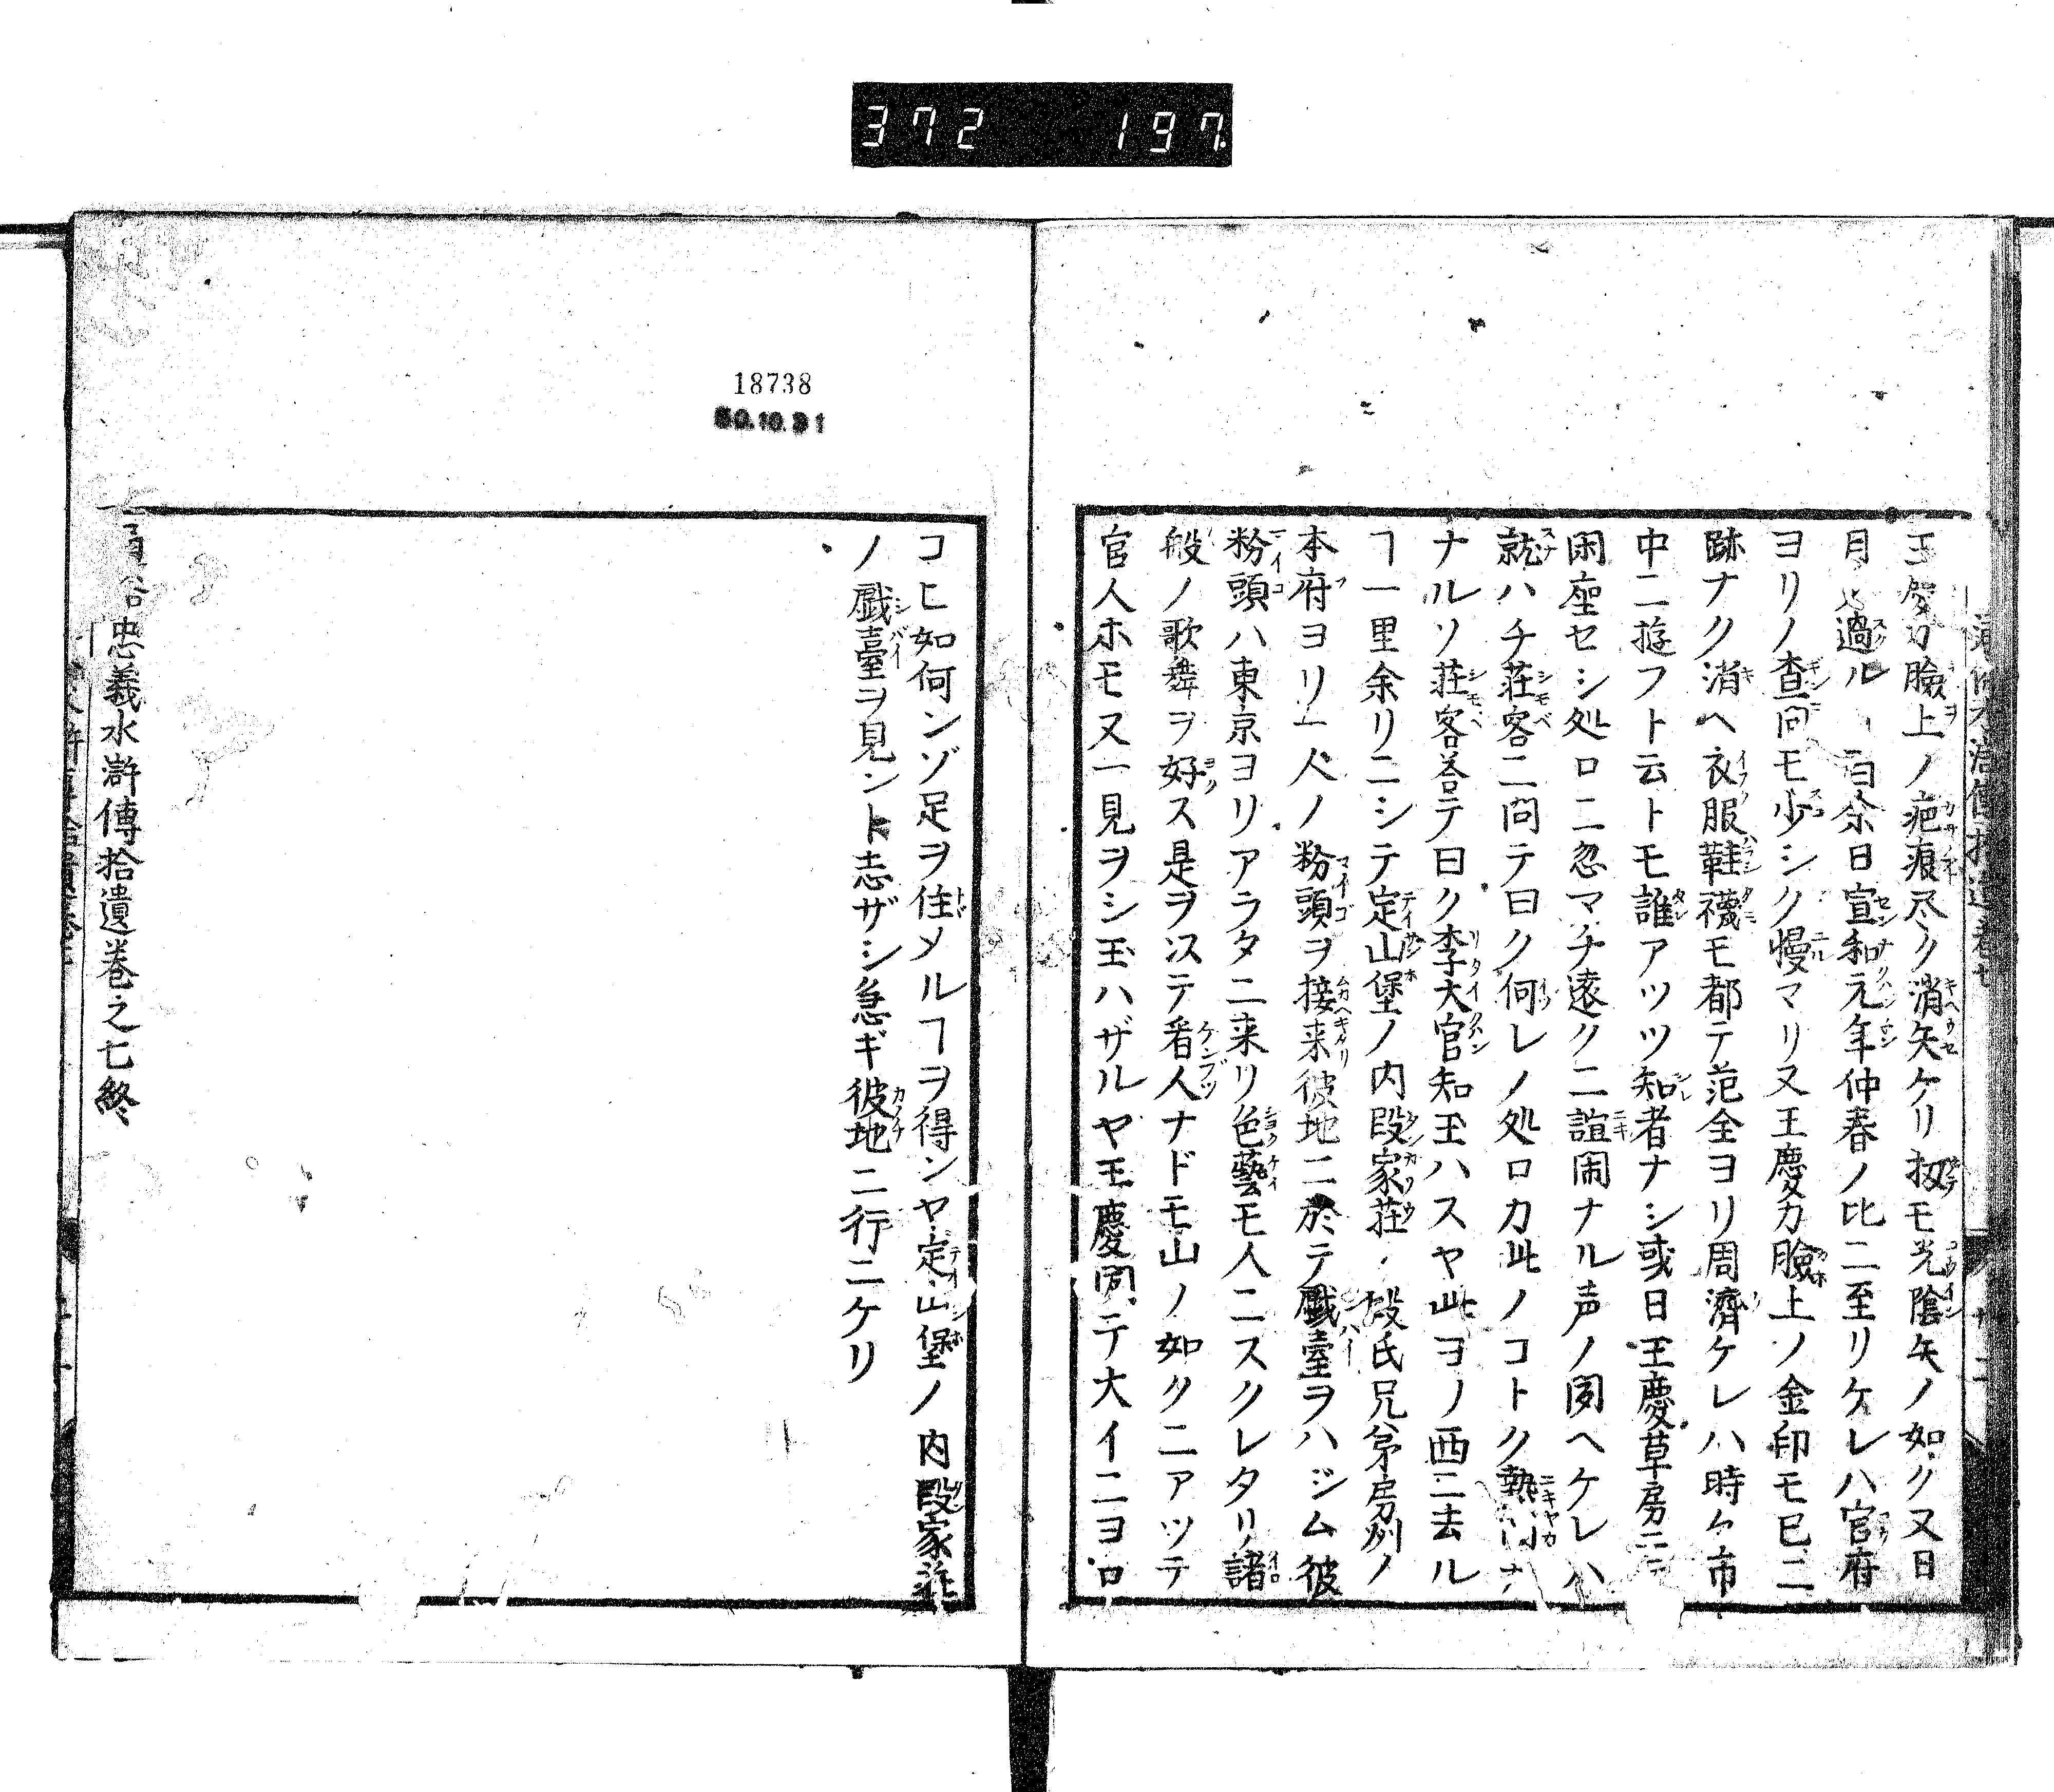 372 197
王慶カ臉上ノ疤痕尽ク消矢ケリ扨モ光陰矢ノ如ク又日
月過ル 百余日宣和元年仲春ノ比ニ至リケレハ官府
ヨリノ査問モ少シク慢マリ又王慶カ臉上ノ金印モ已ニ
跡ナク消ヘ衣服鞋襪モ都テ范全ヨリ周濟ケレハ時々市
中ニ遊フト云トモ誰アツツ知者ナシ或日王慶草房ニテ
閑座セシ処ロニ忽マチ遠クニ諠閙ナル声ノ聞ヘケレハ
就ハチ荘客ニ問テ曰ク何レノ処ロカ此ノコトク熱閙ナ
ナルソ荘客荅テ曰ク李大官知玉ハスヤ此ヨノ西ニ去ル
ヿ一里余リニシテ定山堡ノ内段家荘ノ段氏兄弟房州ノ
本府ヨリ一人ノ粉頭ヲ接来彼地ニ於テ戯臺ヲハジム彼
粉頭ハ東京ヨリアラタニ来リ色藝モ人ニスクレタリ諸
般ノ歌舞ヲ好ス是ヲ以テ看人ナドモ山ノ如クニアツテ
官人ホモ又一見ヲシ玉ハザルヤ王慶聞テ大イニヨロ
18738
50.10.31
コヒ如何ンゾ足ヲ住メルヿヲ得ンヤ定山堡ノ内段家荘
ノ戯臺ヲ見ント志ザシ急ギ彼地ニ行ニケリ
忠義水滸傳拾遺巻之七終